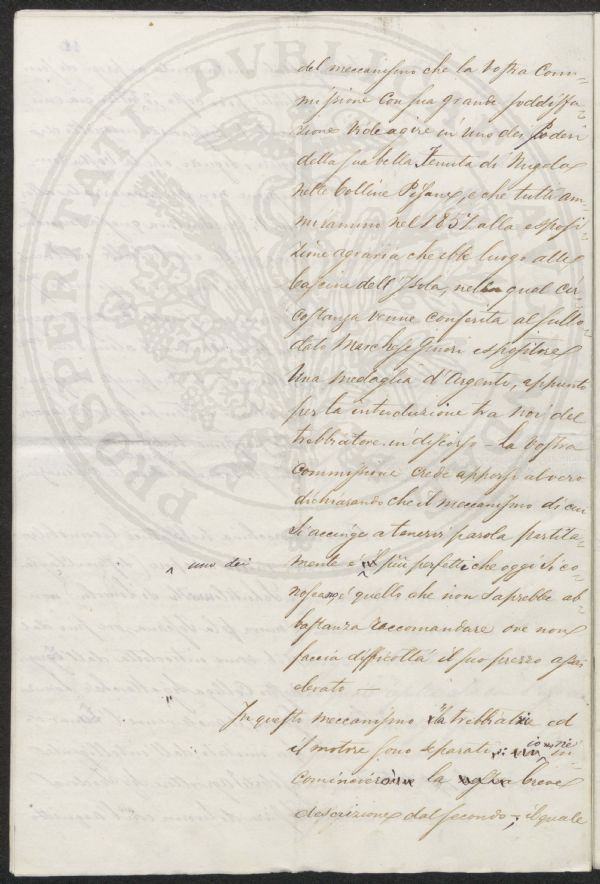 PROSPERITATI PVBLICAE AVGENDAE
del meccanismo che la Vostra Com=
missione con sua grande soddisfa=
zione vide agire in uno dei Poderi
della sua bella Tenuta di Mugola
nelle Colline Pisane, e che tutti am=
mirammo nel 1857 alla esposi=
zione agraria che ebbe luogo alle
Cascine dell'Isola, nella qual cir=
costanza venne conferita al sullo=
dato Marchese Ginori espositore
una medaglia d'Argento, appunto
per la introduzione tra noi del
trebbiatore in discorso – La Vostra
Commissione crede apporsi al vero
dichiarando che il meccanismo di cui
si accinge a tenervi parola partita=
mente è uno dei più perfetti che oggi si co=
noscano e quello che non saprebbe ab=
bastanza raccomandare ove non
faccia difficoltà il suo prezzo assai
elevato —
In questo meccanismo il trebbiatore ed
il motore sono separati,
la breve
descrizione dal secondo, il quale